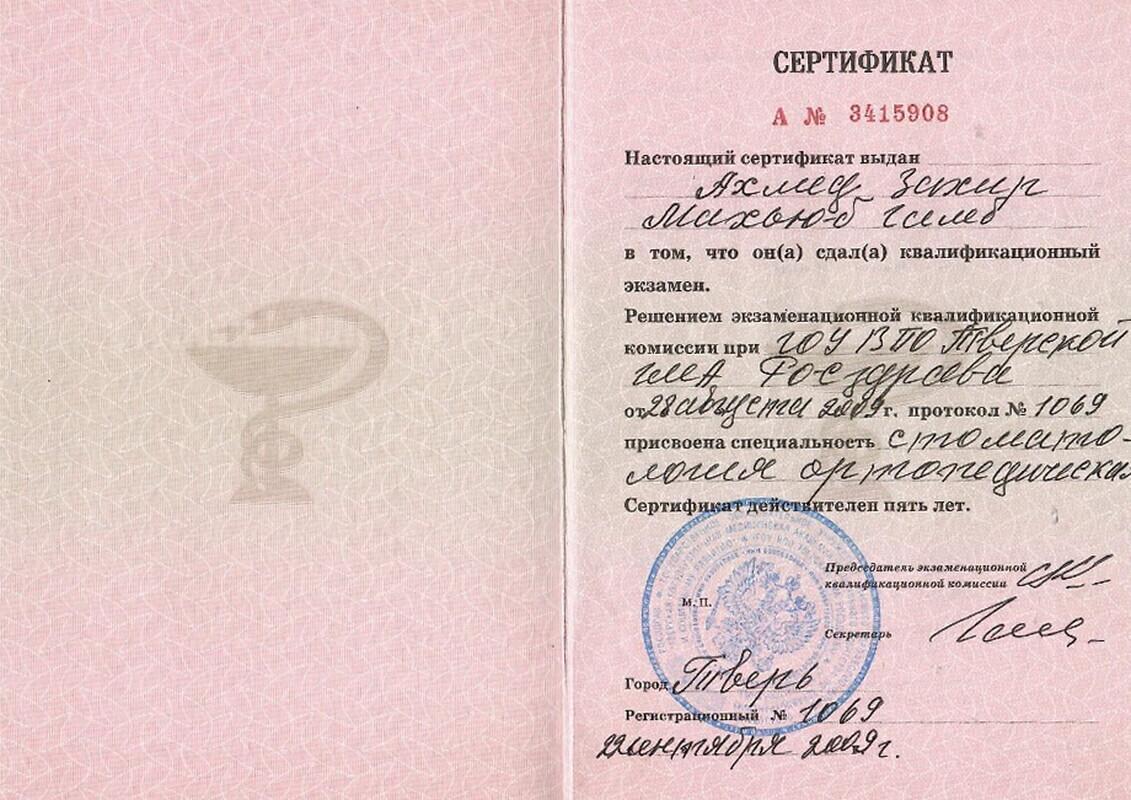 СЕРТИФИКАТ
А № 3415908
Настоящий сертификат выдан
Ахмед Захир
Махбуб
в том, что он(а) сдал(а) квалификационный
экзамен.
Решением экзаменационной квалификационной
комиссии при ГОУ ВПО Тверской
ГМА Росздрава
от 28 августа 2009 г. протокол № 1069
присвоена специальность стомато-
логия ортопедическая
Сертификат действителен пять лет.
Председатель экзаменационной
квалификационной комиссии
М.П.
Секретарь
Город Тверь
Регистрационный № 1069
сентября 2009 г.